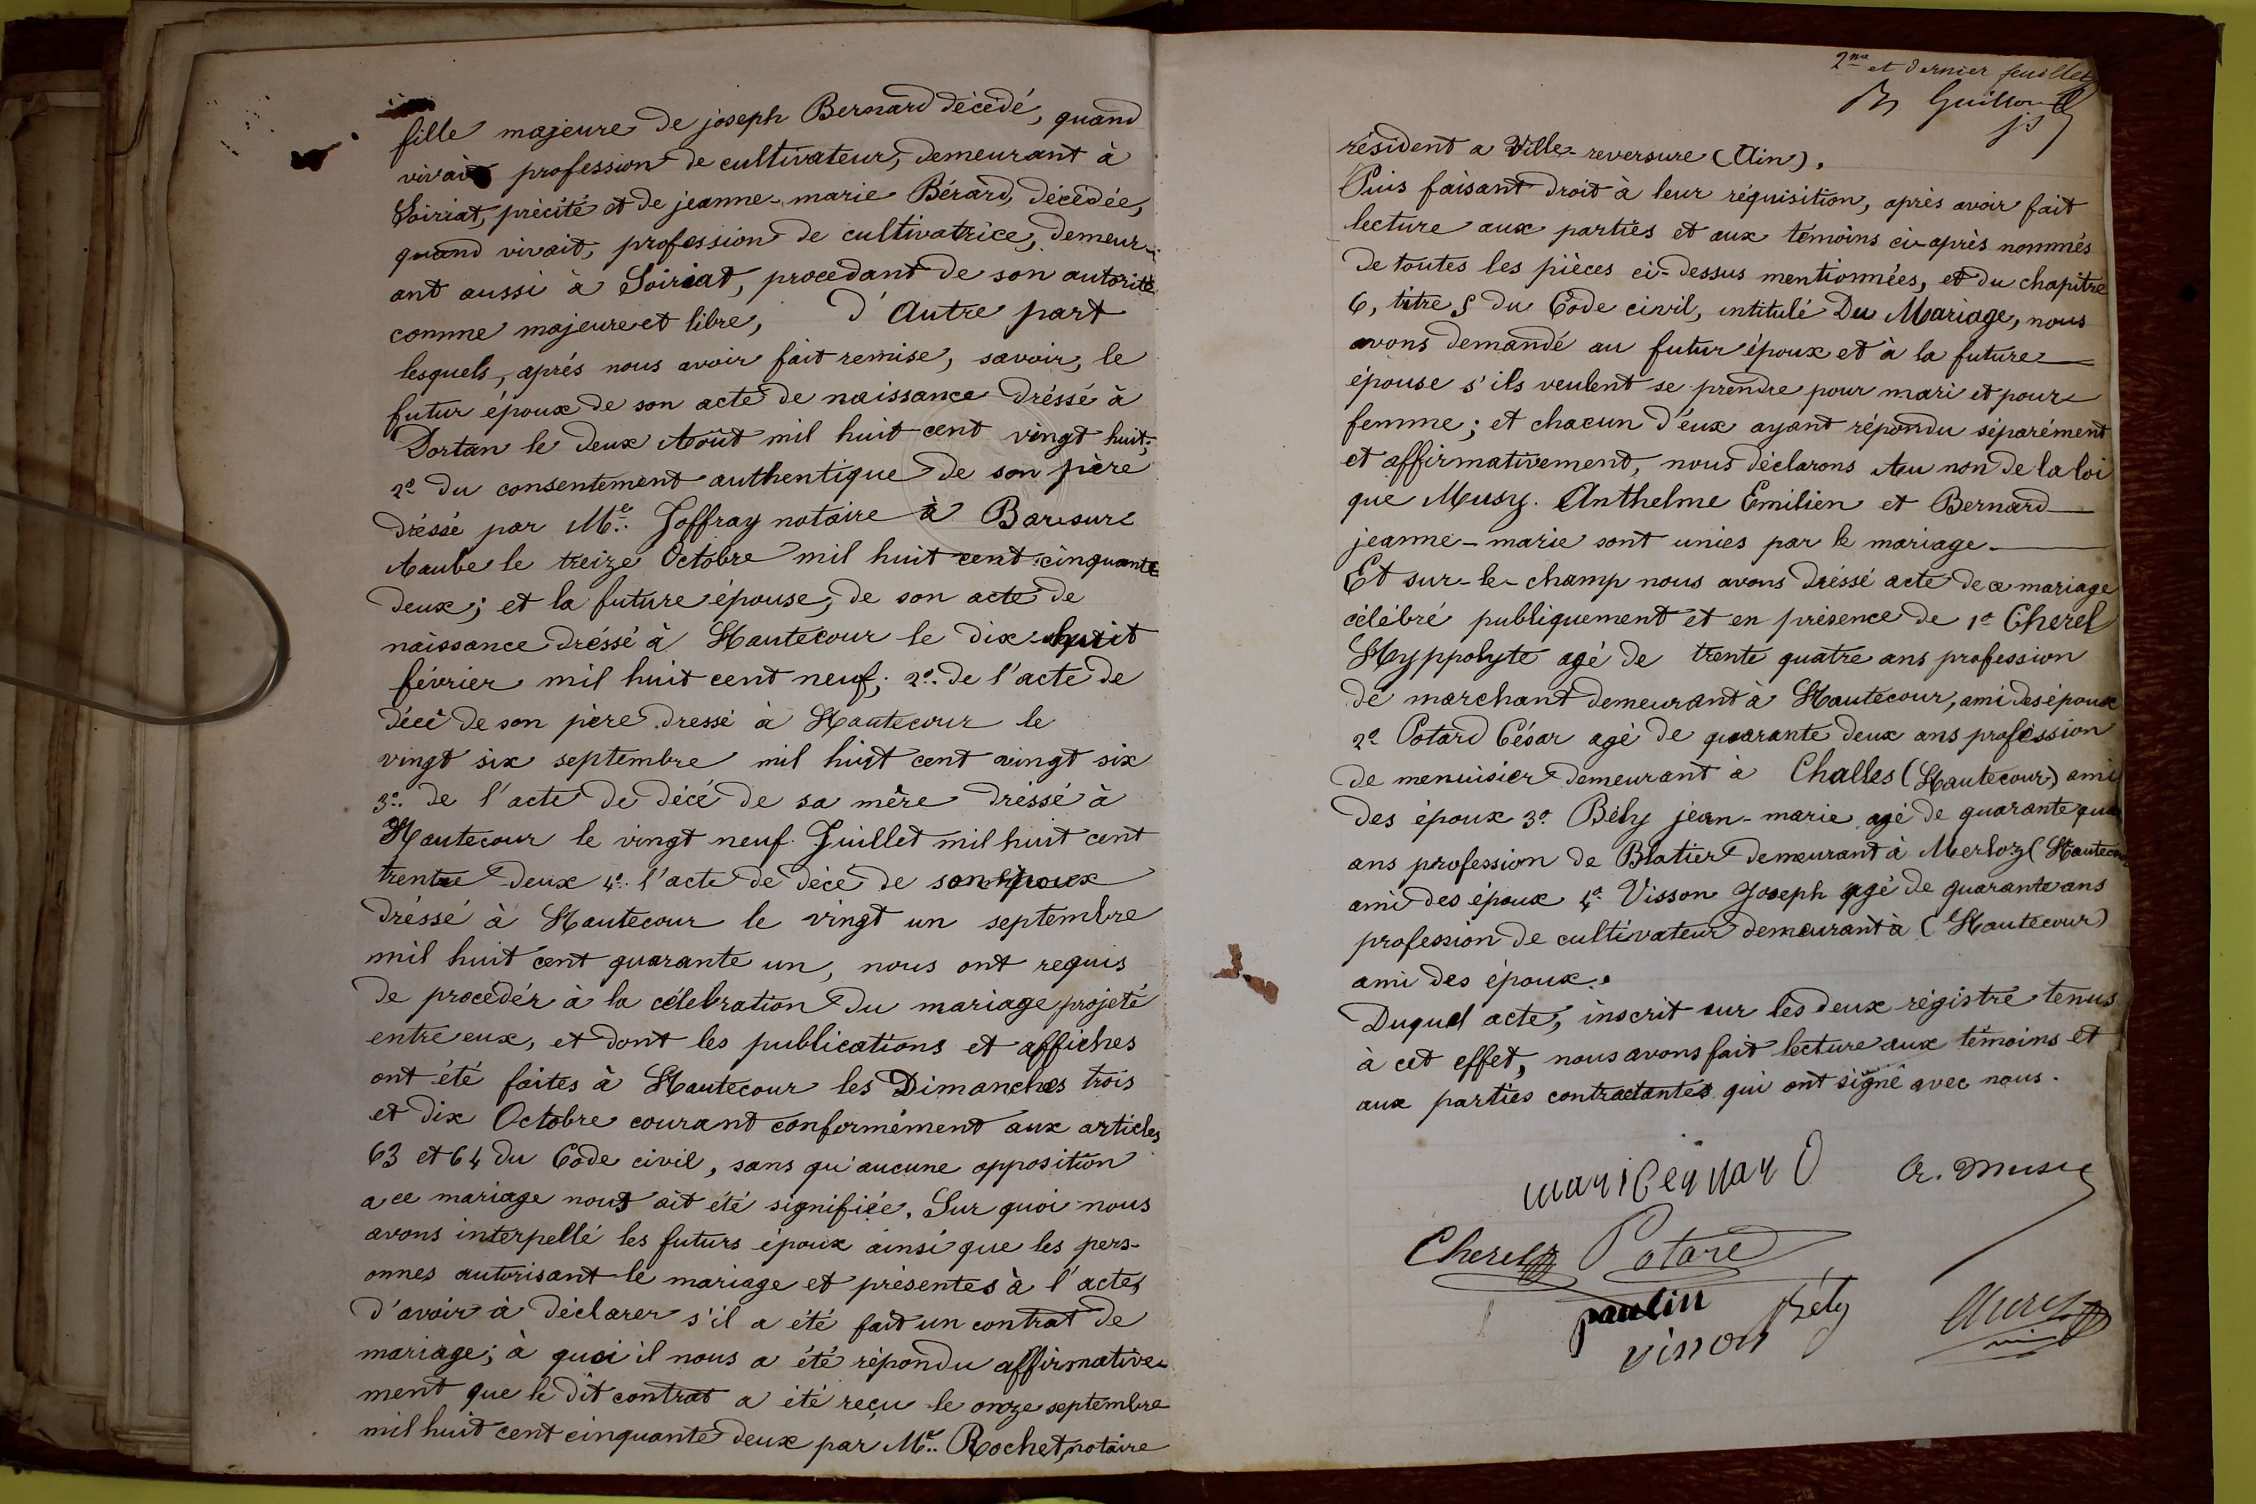 fille majeure de joseph Bernard décédé, quand
vivait profession de cultivateur, demeurant à
Soiriat, précité et de jeanne-marie Bérard, décédée,
quand vivait, profession de cultivatrice, demeur-
ant aussi à Soiriat, procedant de son autorité
comme majeure et libre, d'Autre part
lesquels, aprés nous avoir fait remise, savoir, le
futur époux de son acte de naissance dréssé à
Dortan le deux Août mil huit cent vingt huit;
2º du consentement authentique de son père
dréssé par Me. Joffray notaire à Bar sur
Aaube le treize Octobre mil huit cent cinquante
deux; et la future épouse, de son acte de
naissance dréssé à Hautecour le dix huit
février mil huit cent neuf; 2º. de l'acte de
décé de son père dressé à Hautecour le
vingt six septembre mil huit cent vingt six
3º. de l'acte de décé de sa mère dréssé à
Hautecour le vingt neuf Juillet mil huit cent
trente deux 4º. l'acte de décé de son époux
dréssé à Hautecour le vingt un septembre
mil huit cent quarante un, nous ont requis
de procédér à la célebration du mariage projeté
entre eux, et dont les publications et affiches
ont été faites à Hautecour les Dimanches trois
et dix Octobre courant conformément aux articles
63 et 64 du Code civil, sans qu'aucune opposition
a ce mariage nous ait été signifiée. Sur quoi nous
avons interpellé les futurs époux ainsi que les pers-
onnes autorisant le mariage et présentes à l'acte,
d'avoir à déclarer s'il a été fait un contrat de
mariage; à quoi il nous a été répondu affirmative-
ment que le dit contrat a été reçu le onze septembre
mil huit cent cinquante deux par Me. Rochet, notaire
2me et dernier feuillet
Guillon
résident a Ville-reversure (Ain).
Puis faisant droit à leur réquisition, après avoir fait
lecture aux parties et aux témoins ci-après nommés
de toutes les pièces ci-dessus mentionnées, et du chapitre
6, titre 5 du Code civil, intitulé Du Mariage, nous
avons demandé au futur époux et à la future
épouse s'ils veulent se prendre pour mari et pour
femme; et chacun d'eux ayant répondu séparément
et affirmativement, nous déclarons Au non de la loi
que Musy. Anthelme Emilien et Bernard
jeanne-marie sont unies par le mariage.
Et sur-le-champ nous avons dréssé acte de ce mariage
célébré publiquement et en présence de 1º Cherel
Hyppolyte agé de trente quatre ans profession
de marchant demeurant à Hautecour, ami des époux
2º Potard César agé de quarante deux ans profession
de menuisier demeurant à Challes (Hautecour) ami
des époux 3º Bély jean-marie agé de quarante qua
ans profession de Blatier demeurant à Merloz (Hautecour
ami des époux 4º Visson Joseph agé de quarante ans
profession de cultivateur demeurant à (Hautecour)
ami des époux.
Duquel acte, inscrit sur les deux régistre tenus
à cet effet, nous avons fait lecture aux témoins et
aux parties contractantes qui ont signé avec nous.
mari bernard A. Musy
Cherel Potard
paulin Bély
visson